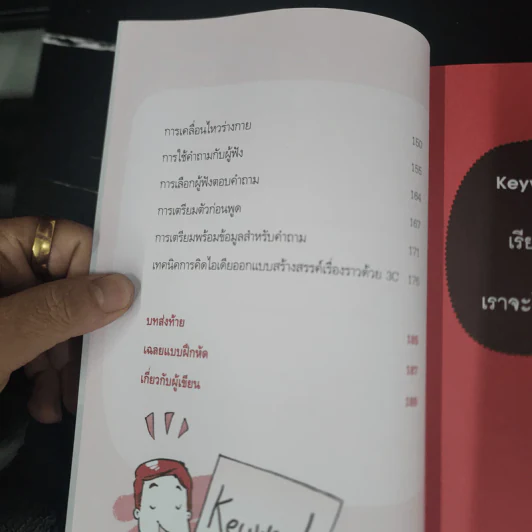 การเคลื่อนไหวร่างกาย 150
การใช้คำถามกับผู้ฟัง 155
การเลือกผู้ฟังตอบคำถาม 164
การเตรียมตัวก่อนพูด 167
การเตรียมพร้อมข้อมูลสำหรับคำถาม 171
เทคนิคการคิดไอเดียออกแบบสร้างสรรค์เรื่องราวด้วย 3C 175
บทส่งท้าย 185
เฉลยแบบฝึกหัด 187
เกี่ยวกับผู้เขียน 188
Keyw
เรีย
เราจะ